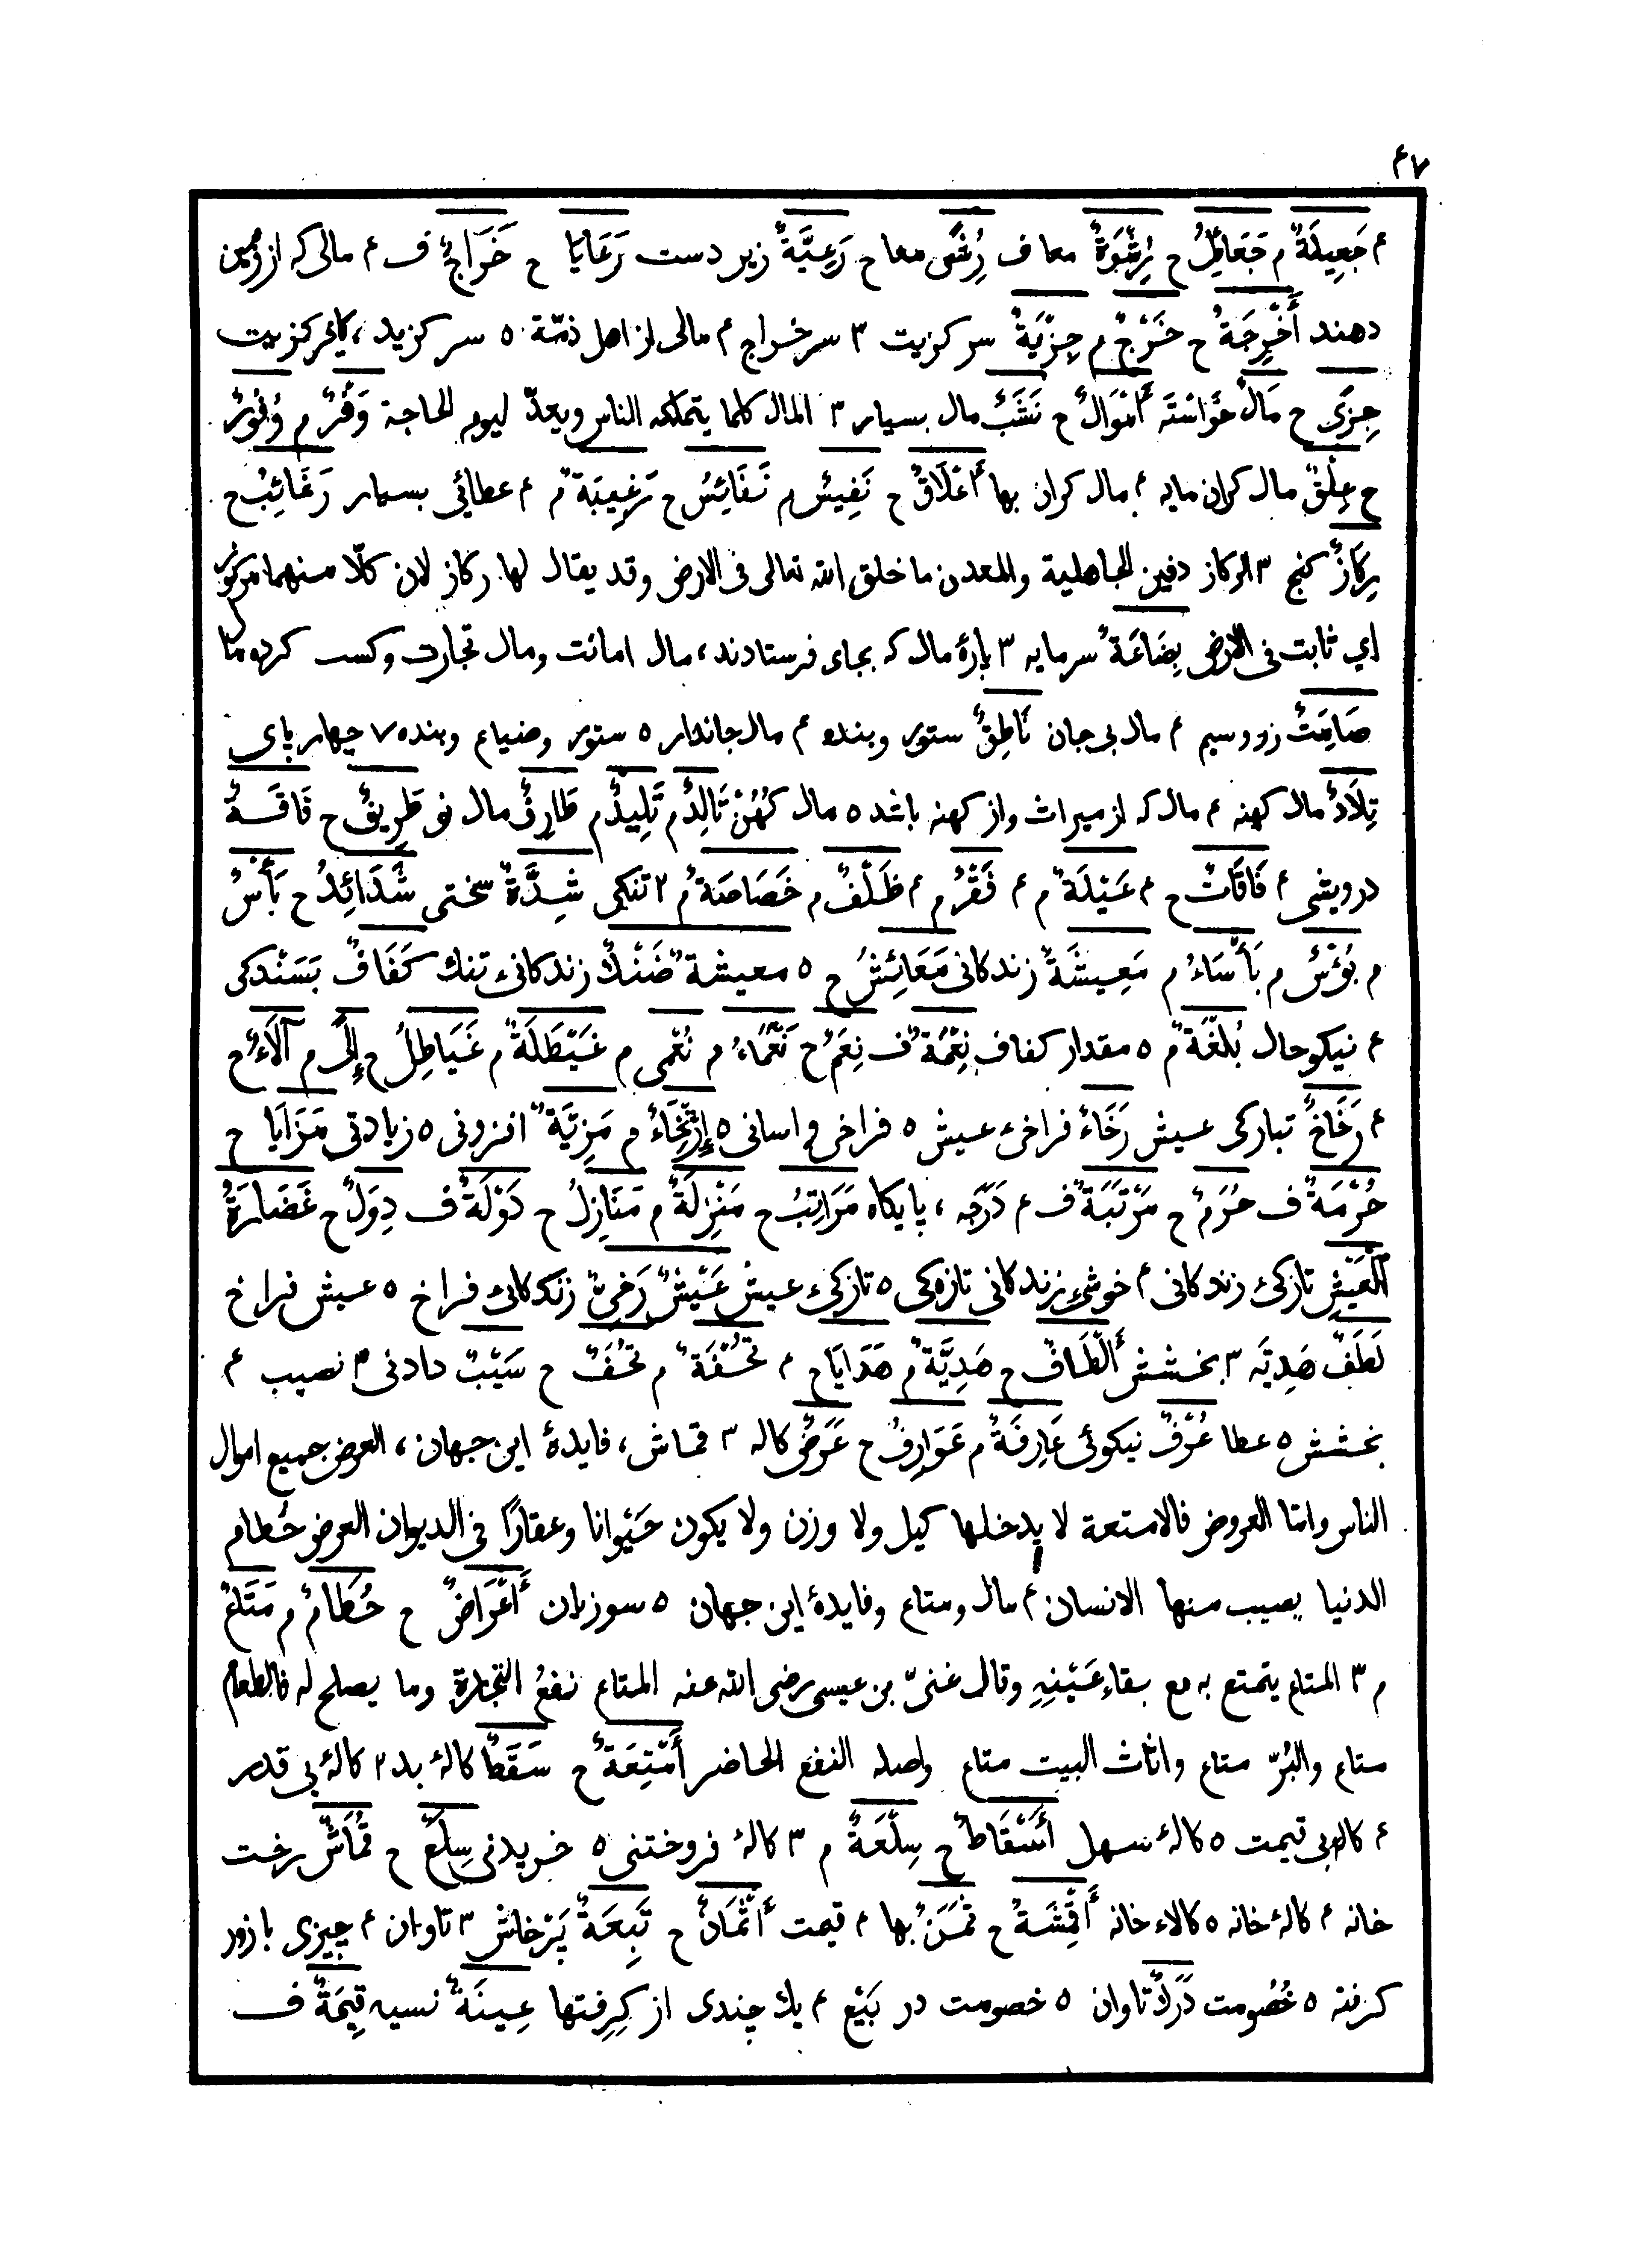 ٤٧
۴ جَعِيلَةٌ م جَعَائِلُ ح رِشْوَةٌ معا ف رُشًى معا ح رَعِيَّةٌ زیر دست رَعَايَا ح خَرَاجٌ ف ۴ مالی که از زمین
دهند أَخْرِجَةٌ ح خَرْجٌ م جِزْيَةٌ سر کزیت ۳ سر خراج ۴ مالی از اهل ذمّة ۵ سر کزید ، کافر کزیت
جِزًى ح مَالٌ خَوَاسْتَه أَمْوَالٌ ح نَشَبٌ مال بسیار ۳ المال كلما يتملكه الناس ويعدّ ليوم الحاجة وَفْرٌ م وُفُورٌ
ح عِلْقٌ مال کران مایه ۴ مال کران بها أَعْلَاقٌ ح نَفِيسٌ م نَفَائِسُ ح رَغِيبَةٌ م ۴ عطائی بسیار رَغَائِبُ ح
رِكَازٌ کنج ۳ الركاز دفين الجاهلية والمعدن ما خلق الله تعالى فى الارض وقد يقال لها ركاز لان كلّا منهما مركوز
اي ثابت فى الارض بِضَاعَةٌ سرمایه ۳ پارهٔ مال که بجای فرستادند ، مال امانت ومال تجارت وکسب کرده
صَامِتٌ زر وسیم ۴ مال بی جان نَاطِقٌ ستور وبنده ۴ مال جاندار ۵ ستور وضیاع وبنده ۷ چهار پای
تِلَادٌ مال کهنه ۴ مال که از میراث واز کهنه باشد ۵ مال کُهُنْ تَالِدٌ م تَلِيدٌ م طَارِفٌ مال نو طَرِيفٌ ح فَاقَةٌ
درویشی ۴ فَاقَاتٌ ح ۴ عَيْلَةٌ م ۴ فَقْرٌ م ۴ ظَلَفٌ م خَصَاصَةٌ م ۲ تنکی شِدَّةٌ سختی شَدَائِدُ ح بَأْسٌ
م بُؤْسٌ م بَأْسَاءُ م مَعِيشَةٌ زندکانی مَعَائِشُ ح ۵ معيشة ضَنْكٌ زندکانیء تنك كَفَافٌ بَسَنْدکی
۴ نیکو حال بُلْغَةٌ م ۵ مقدار کفاف نِعْمَةٌ ف نِعَمٌ ح نَعْمَاءُ م نُعْمَى م غَيْطَلَةٌ م غَيَاطِلُ ح إِلًى م آلَاءٌ ح
۴ رَخَاخٌ تبارکی عیش رَخَاءٌ فراخیء عیش ۵ فراخی و اسانی ۵ إِرْخَاءٌ م مَزِيَّةٌ افزونی ۵ زیادتی مَزَايَا ح
حُرْمَةٌ ف حُرَمٌ ح مَرْتَبَةٌ ف ۴ دَرَجَه ، پایکاه مَرَاتِبُ ح مَنْزِلَةٌ م مَنَازِلُ ح دَوْلَةٌ ف دِوَلٌ ح غَضَارَةُ
الْعَيْشِ تازکیء زندکانی ۴ خوشیء زندکانی تازه‌کی ۵ تازکیء عیش عَيْشٌ رَخِيٌّ زندکانیء فراخ ۵ عیش فراخ
لَطَفٌ هَدِيَّه ۳ بخشش أَلْطَافٌ ح هَدِيَّةٌ م هَدَايَا ح ۴ تُحْفَةٌ م تُحَفٌ ح سَيْبٌ دادنی ۳ نصیب ۴
بخشش ۵ عطا عُرْفٌ نیکوئی عَارِفَةٌ م عَوَارِفُ ح عَرَضٌ کاله ۳ قماش ، فایدهٔ این جهان ، العرض جميع اموال
الناس واما العروض فالامتعة لا يدخلها كيل ولا وزن ولا يكون حَيْوانا وعقارًا فى الديوان العرض حُطام
الدنيا يصيب منها الانسان ۴ مال ومتاع وفایدهٔ این جهان ۵ سوزیان أَعْرَاضٌ ح حُطَامٌ م مَتَاعٌ
م ۳ المتاع يتمتع به مع بقاءِ عَيْنِهِ وقال غنىّ بن عيسى رضى الله عنه المتاع نفعُ التجارة وما يصلح له فالطعام
متاع والبُرّ متاع واثاث البيت متاع واصله النفع الحاضر أَمْتِعَةٌ ح سَقَطٌ کالهٔ بد ۲ کالهٔ بی قدر
۴ کالهٔ بی قیمت ۵ کالهٔ سهل أَسْقَاطٌ ح سِلْعَةٌ م ۳ کالهٔ فروختنی ۵ خریدنی سِلَعٌ ح قُمَاشٌ رخت
خانه ۴ کالهٔ خانه ۵ کالاء خانه أَقْمِشَةٌ ح ثَمَنٌ بها ۴ قیمت أَثْمَانٌ ح تَبِعَةٌ پَرْخاش ۳ تاوان ۴ چیزی با زور
کرفته ۵ خُصُومت دَرَكٌ تاوان ۵ خصومت در بَيْع ۴ یك چندی از کِرِفتها عِينَةٌ نسیه قِيمَةٌ ف